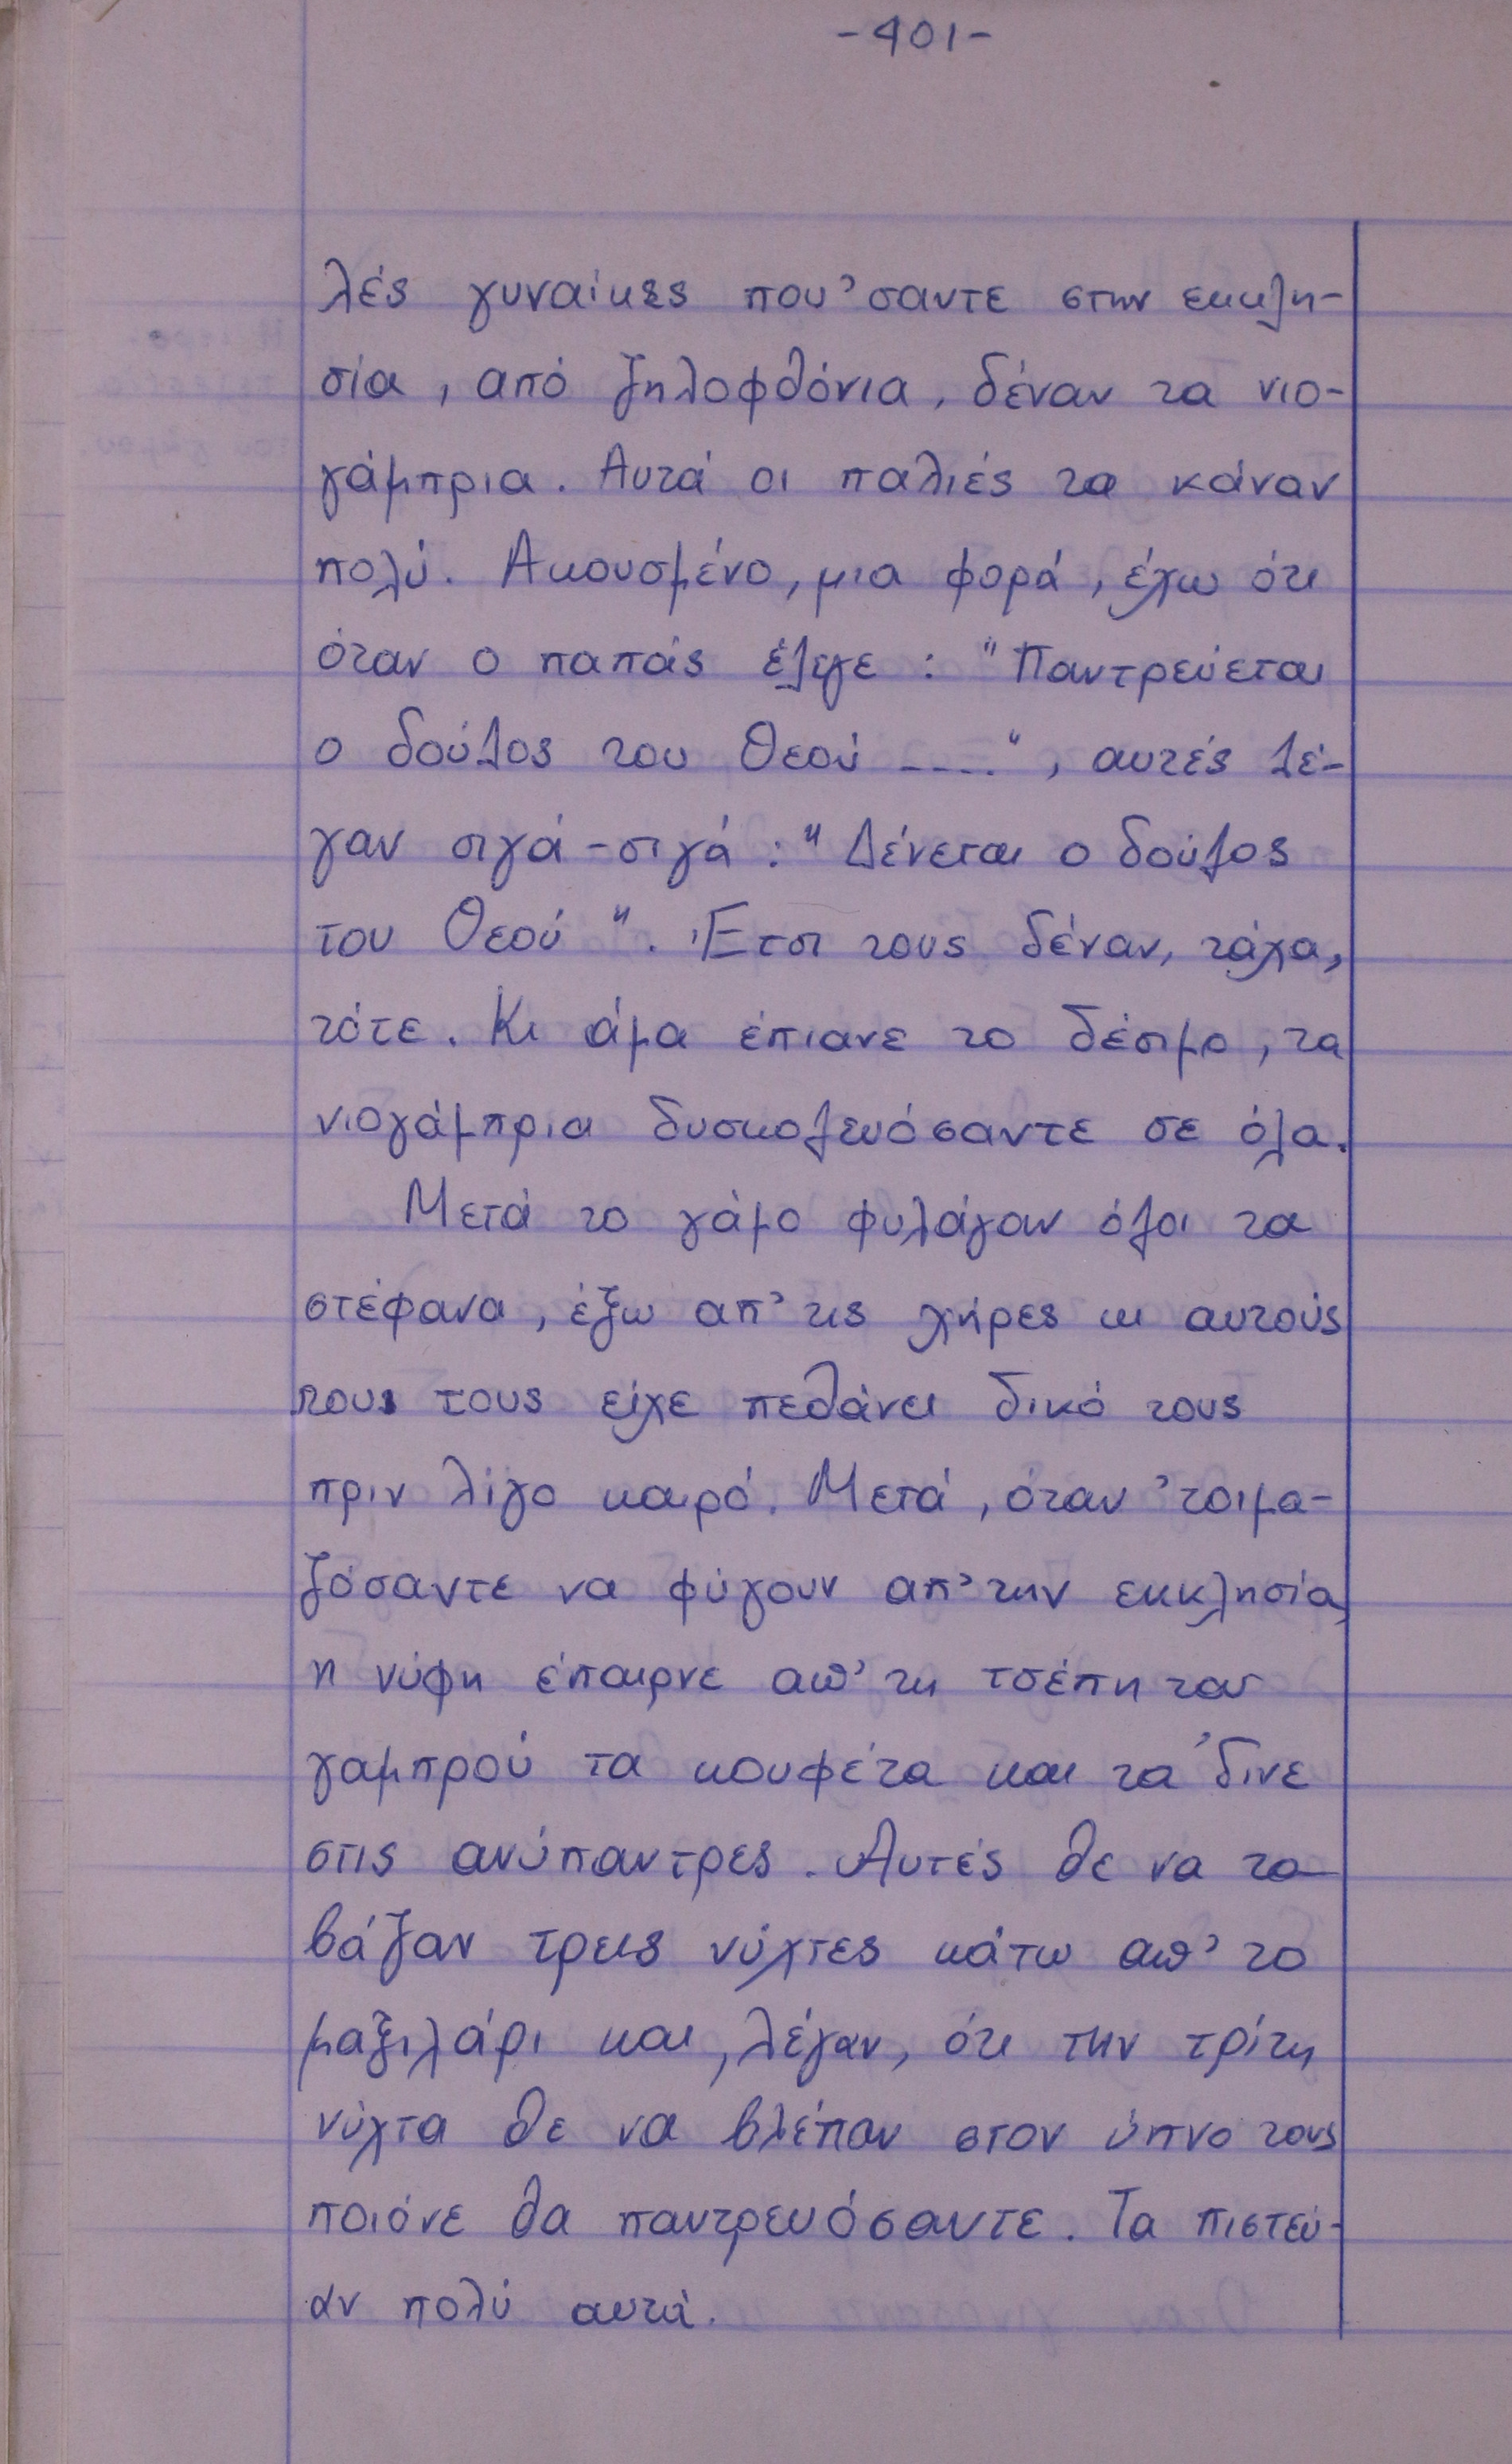 -401-
λές γυναίκες που'σαντε στην εκκλη-
σία, από ζηλοφθόνια, δέναν τα νιο-
γάμπρια. Αυτά οι παλιές τα κάναν
πολύ. Ακουσμένο, μια φορά, έχω ότι
όταν ο παπάς έλεγε : "Παντρεύεται
ο δούλος του Θεού ....", αυτές λέ-
γαν σιγά-σιγά : "Δένεται ο δούλος
του Θεού". Έτσι τους δέναν, τάχα,
τότε. Κι άμα έπιανε το δέσιμο, τα
νιογάμπρια δυσκολευόσαντε σε όλα.
Μετά το γάμο φυλάγαν όλοι τα
στέφανα, έξω απ' τις χήρες κι αυτούς
που τους είχε πεθάνει δικό τους
πριν λίγο καιρό. Μετά, όταν 'τοιμα-
ζόσαντε να φύγουν απ' την εκκλησία,
η νύφη έπαιρνε απ' τη τσέπη του
γαμπρού τα κουφέτα και τα 'δινε
στις ανύπαντρες. Αυτές θε να τα
βάζαν τρεις νύχτες κάτω απ' το
μαξιλάρι και, λέγαν, ότι την τρίτη
νύχτα θε να βλέπαν στον ύπνο τους
ποιόνε θα παντρευόσαντε. Τα πιστεύ-
αν πολύ αυτά.